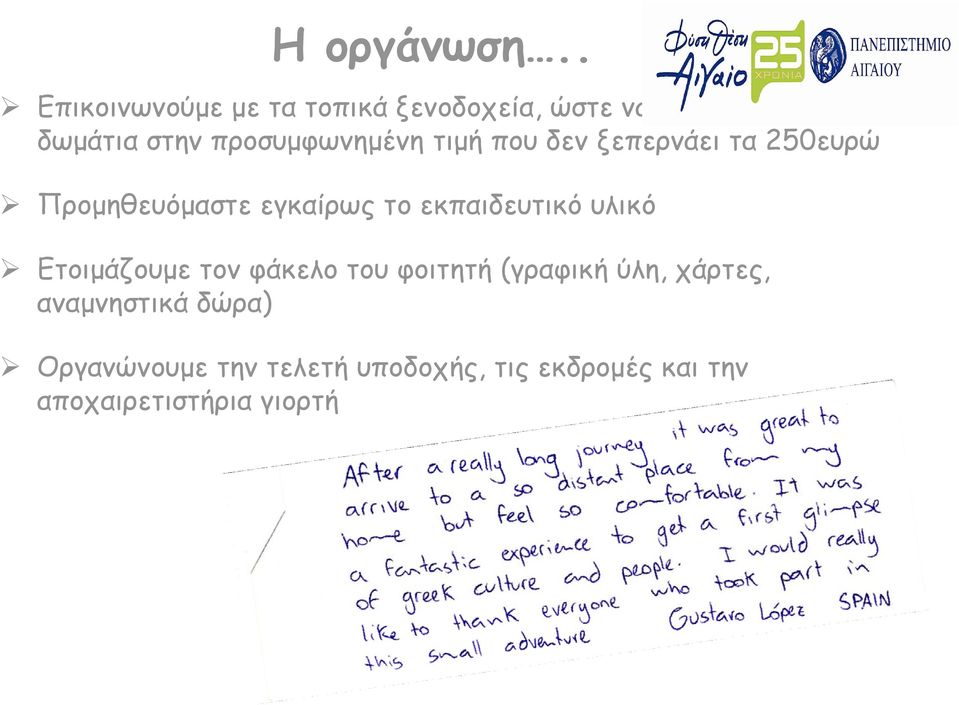 Η οργάνωση…..
Φύση Θέση
Αιγαίο
25
ΧΡΟΝΙΑ
ΠΑΝΕΠΙΣΤΗΜΙΟ
ΑΙΓΑΙΟΥ
Επικοινωνούμε με τα τοπικά ξενοδοχεία, ώστε
δωμάτια στην προσυμφωνημένη τιμή που δεν ξεπερνάει τα 250ευρώ
Προμηθευόμαστε εγκαίρως το εκπαιδευτικό υλικό
Ετοιμάζουμε τον φάκελο του φοιτητή (γραφική ύλη, χάρτες,
αναμνηστικά δώρα)
Οργανώνουμε την τελετή υποδοχής, τις εκδρομές και την
αποχαιρετιστήρια γιορτή
After a really long journey it was great to
arrive to a so distant place from my
home but feel so comfortable. It was
a fantastic experience to get a first glimpse
of greek culture and people. I would really
like to thank everyone who took part in
this small adventure Gustavo López SPAIN